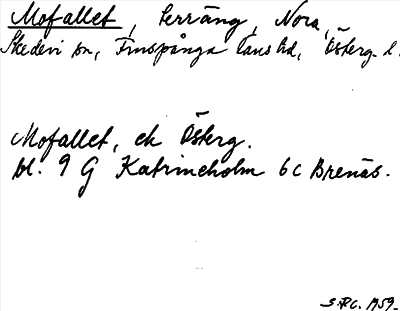 Mofallet, terräng, Nora,
Skedevi sn, Finspånga läns hd, Österg. l.
Mofallet, ek Österg.
bl. 9 G Katrineholm 6 c Brenäs.
S.R.C. 1959.